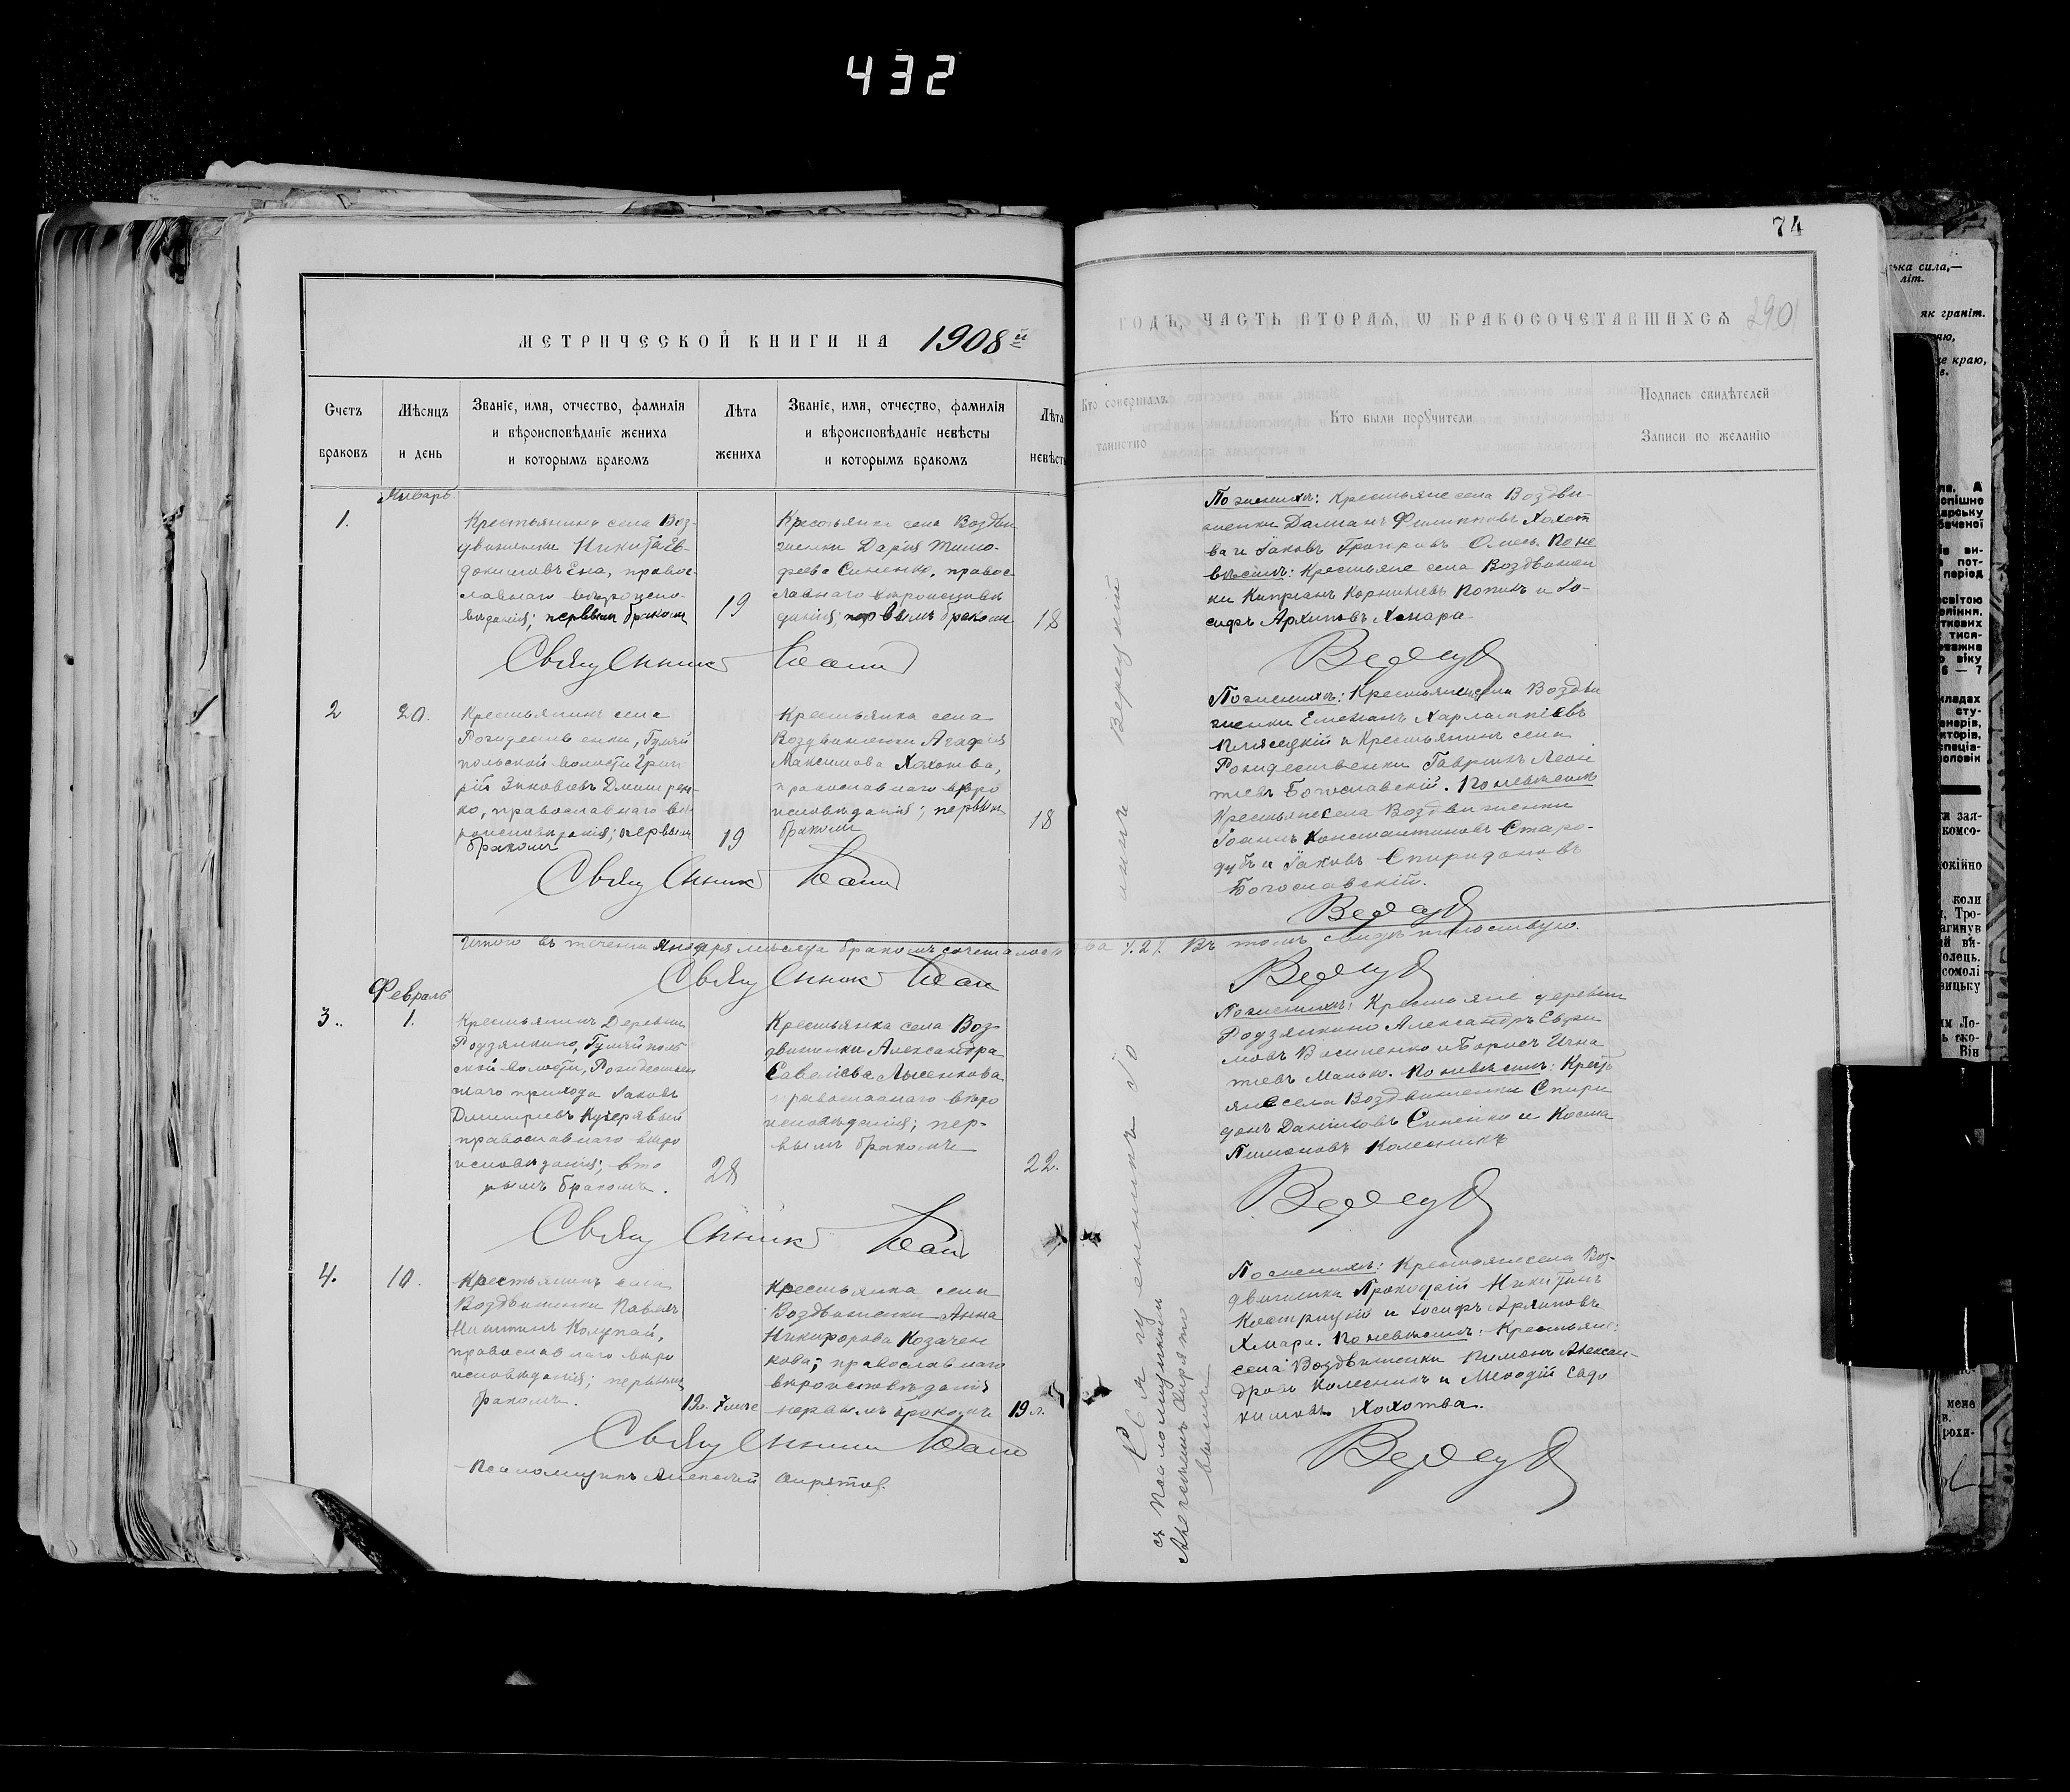 432
74
290
МЕТРИЧЕСКОЙ КНИГИ НА 1908 й
ГОДЪ, ЧАСТЬ ВТОРАЯ, Ѡ БРАКОСОЧЕТАВШИХСЯ
Счетъ
браковъ
Мѣсяцъ
и день
Званіе, имя, отчество, фамилія
и вѣроисповѣданіе жениха
и которымъ бракомъ
Лѣта
жениха
Званіе, имя, отчество, фамилія
и вѣроисповѣданіе невѣсты
и которымъ бракомъ
Лѣта
невѣсты
Кто совершалъ
таинство
Кто были поручители
Подпись свидѣтелей
Записи по желанію
Январь
1.
Крестьянинъ села Воз-
движенки Никита Ев-
докимовъ Ена, правос-
лавнаго вѣроиспо-
вѣданія; первымъ бракомъ
19
Крестьянка села Воздви
женки Дарія Тимо-
феева Синенко, правос
лавнаго вѣроисповѣ
данія, первымъ бракомъ
18
По женихѣ: Крестьяне села Воздви-
женки Даміанъ Филипповъ Хохот
ва и Іаковъ
По не
вѣстѣ: Крестьяне села Воздвижен
ки Кипріанъ Корниліевъ Попикъ и Іо-
сифъ Архиповъ Хмара
Священникъ Іоаннъ
Вержуц
2
20.
Крестьянинъ села
Рождественки, Гуляй
польской волости Григо
рій Зиновіевъ Дмитрен-
ко, православнаго вѣ-
роисповѣданія; первымъ
бракомъ
19
Крестьянка села
Воздвиженки Агафія
Максимова Хохотва,
православнаго вѣро
исповѣданія; первымъ
бракомъ
18
По женихѣ: Крестьяне села Воздви
женки Емеліанъ Харлампіевъ
и Крестьянинъ села
Рождественки Гавріилъ Леон
тіевъ Богославскій. По невѣстѣ
Крестьяне села Воздвиженки
Іоаннъ Константиновъ Старо-
дубъ и Іаковъ Спиридоновъ
Богославскій.
Священникъ Іоаннъ
Итого въ теченіи января мѣсяца бракомъ сочеталось два /.2/. Въ томъ свидѣтельствую.
Священникъ Іоаннъ
Февраль
3.
1.
Крестьянинъ Деревни
Родзянкино, Гуляйполь
ской волости, Рождествен
скаго прихода Іаковъ
Димитріевъ Кучерявый
православнаго вѣро
исповѣданія; вто
рымъ бракомъ.
28
Крестьянка села Воз
движенки Александра
Савеліева Лысенкова
православнаго вѣро
исповѣданія; пер-
вымъ бракомъ
22.
По женихѣ: Крестьяне деревни
Родзянкино Александръ Евфи
мовъ Василенко и Борисъ Игна
тіевъ Манько. По невѣстѣ: Кресть
яне села Воздвиженки Спири
донъ Даниловъ Синенко и Косма
Пимоновъ Колесникъ
Священникъ Іоаннъ
4.
10.
Крестьянинъ села
Воздвиженки Павелъ
Никитинъ Колупай,
православнаго вѣро
исповѣданія; первымъ
бракомъ.
Крестьянка села
Воздвиженки Анна
Никифорова Казачен
кова; православнаго
вѣроисповѣданія
первымъ бракомъ
19 л.
По женихѣ: Крестьяне села Воз-
движенки Прокофій Никитинъ
Кострицкій и Іосифъ Архиповъ
Хмара. По невѣстѣ: Крестьяне
села Воздвиженки Пимонъ Алексан-
дровъ Колесникъ и Меѳодій Евдо
кимовъ Хохотва.
Священникъ Іоаннъ
Псаломщикъ Алексій
Священникъ Іо
аннъ
съ Псаломщикомъ